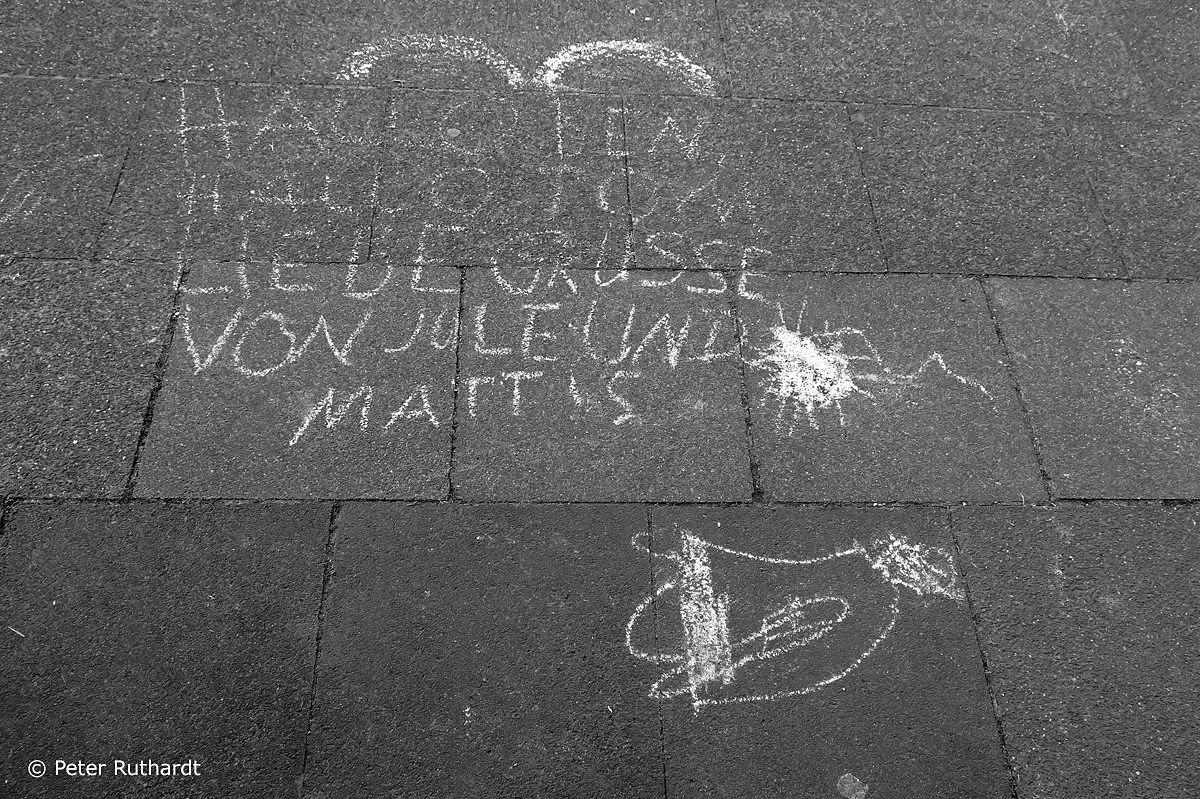 HALLO LEN
HALLO TOM
LIEBE GRÜSSE
VON JULE UND
MATTIS
© Peter Ruthardt